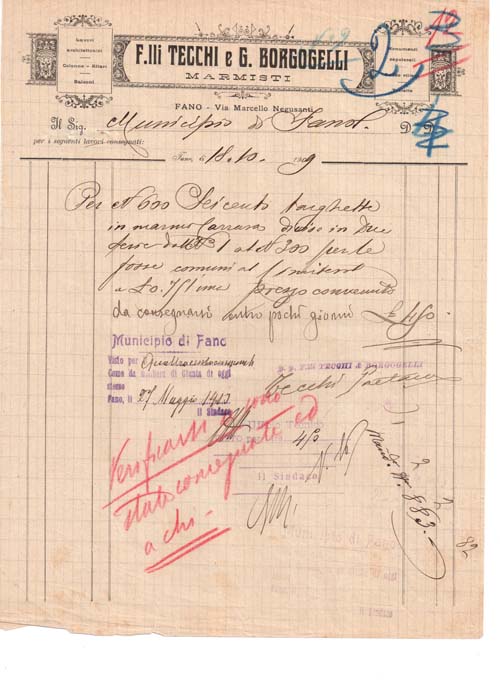 Lavori
architettonici
Colonne - Altari
Balconi
F.lli TECCHI e G. BORGOGELLI
MARMISTI
Monumenti
sepolcrali
2
FANO - Via Marcello Negusanti
Il Sig. Municipio di Fano
per i seguenti lavori consegnati:
Fano, li 18. 10. 1909
Per N 600 Seicento targhette
in marmo Carrara diviso in Due
serie dall N. 1 al N 300 per le
fosse comuni al Cimitero
a £ 0.75 l'una prezzo convenuto
da consegnarsi entro pochi giorni £ 450
Municipio di Fano
Visto per Quattrocentocinquanta
Come da numeri di Giunta di oggi
stesso
Fano, li 27 Maggio 1913
il Sindaco
F.lli TECCHI & BORGOGELLI
Tecchi
450
il Sindaco
Verificarsi se sono
state consegnate ed
a chi.
Mand. N. 883.
82
Municipio di Fano